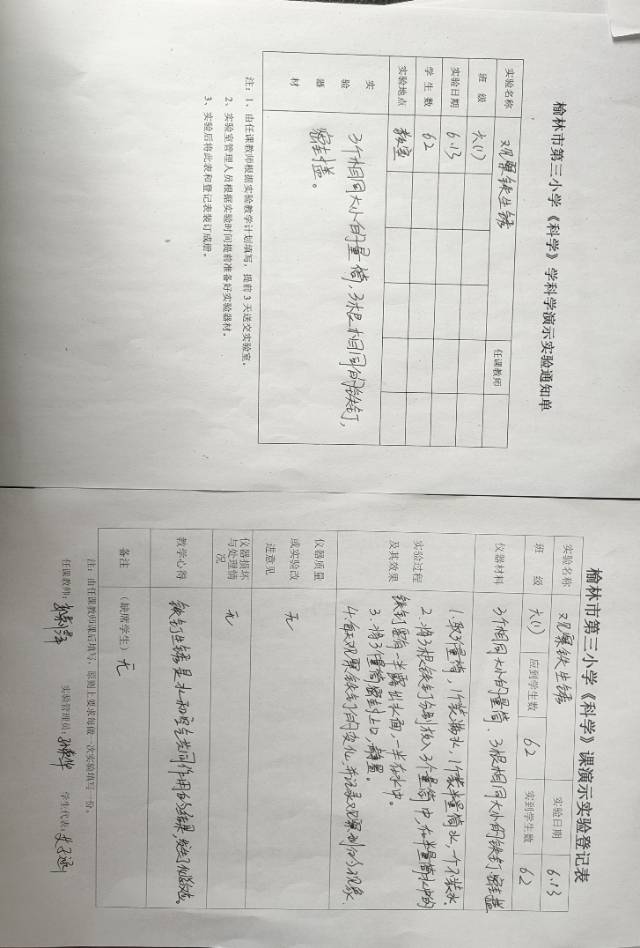 榆林市第三小学《科学》学科学演示实验通知单
实验名称 观察铁生锈 任课教师
班 级 六(1)
实验日期 6.13
学 生 数 62
实验地点 教室
实验器材 3个相同大小的量筒,3根相同的铁钉,
密封盖。
注:1、由任课教师根据实验教学计划填写,提前3天送交实验室。
2、实验室管理人员根据实验时间提前准备好实验器材。
3、实验后将此表和登记表装订成册。
榆林市第三小学《科学》课演示实验登记表
实验名称 观察铁生锈 实验日期 6.13
班 级 六(1) 应到学生数 62 实到学生数 62
仪器材料 3个相同大小的量筒、3根相同大小的铁钉 密封盖
实验过程及其效果 1.取3个量筒,1个装满水,1个装半量筒水,一个不装水.
2.将3根铁钉分别放入3个量筒中,在半量筒水中的
铁钉要有一半露出水面,一半在水中。
3.将3个量筒密封上口,静置。
4.每天观察铁钉的变化,并记录观察到的现象.
仪器质量或实验改进意见 无
仪器损坏与处理情况 无
教学心得 铁钉生锈是水和空气共同作用的结果,
备注 (缺席学生)无
注:由任课教师课后填写,原则上要求每做一次实验填写一份。
任课教师: 实验管理员: 学生代表: